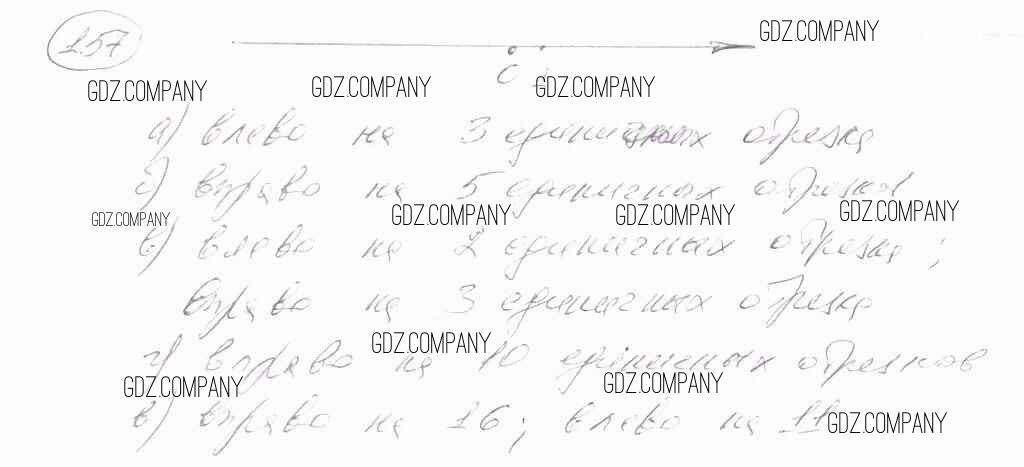 157
GDZ.COMPANY
0 1
GDZ.COMPANY GDZ.COMPANY GDZ.COMPANY
а) влево на 3 единичных отрезка
б) вправо на 5 единичных отрезков
GDZ.COMPANY GDZ.COMPANY GDZ.COMPANY GDZ.COMPANY
в) влево на 2 единичных отрезка;
вправо на 3 единичных отрезка
GDZ.COMPANY
г) вправо на 10 единичных отрезков
GDZ.COMPANY GDZ.COMPANY
в) вправо на 16; влево на 11
GDZ.COMPANY